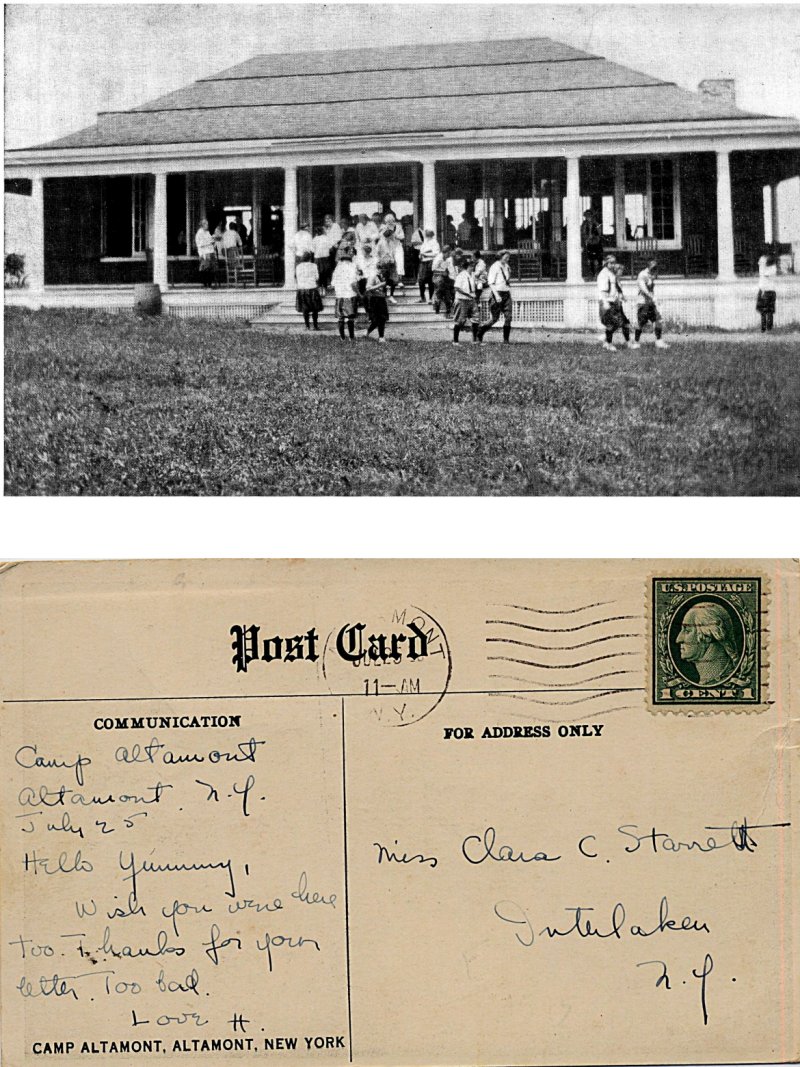 Post Card
MONT
11—AM
N.Y.
U.S. POSTAGE
1 CENT 1
COMMUNICATION
Camp Altamont
Altamont, N.Y.
July 25
Hello Yummy,
Wish you were here
too. Thanks for your
letter. Too bad.
Love H.
CAMP ALTAMONT, ALTAMONT, NEW YORK
FOR ADDRESS ONLY
Miss Clara C. Starrett
Interlaken
N.Y.